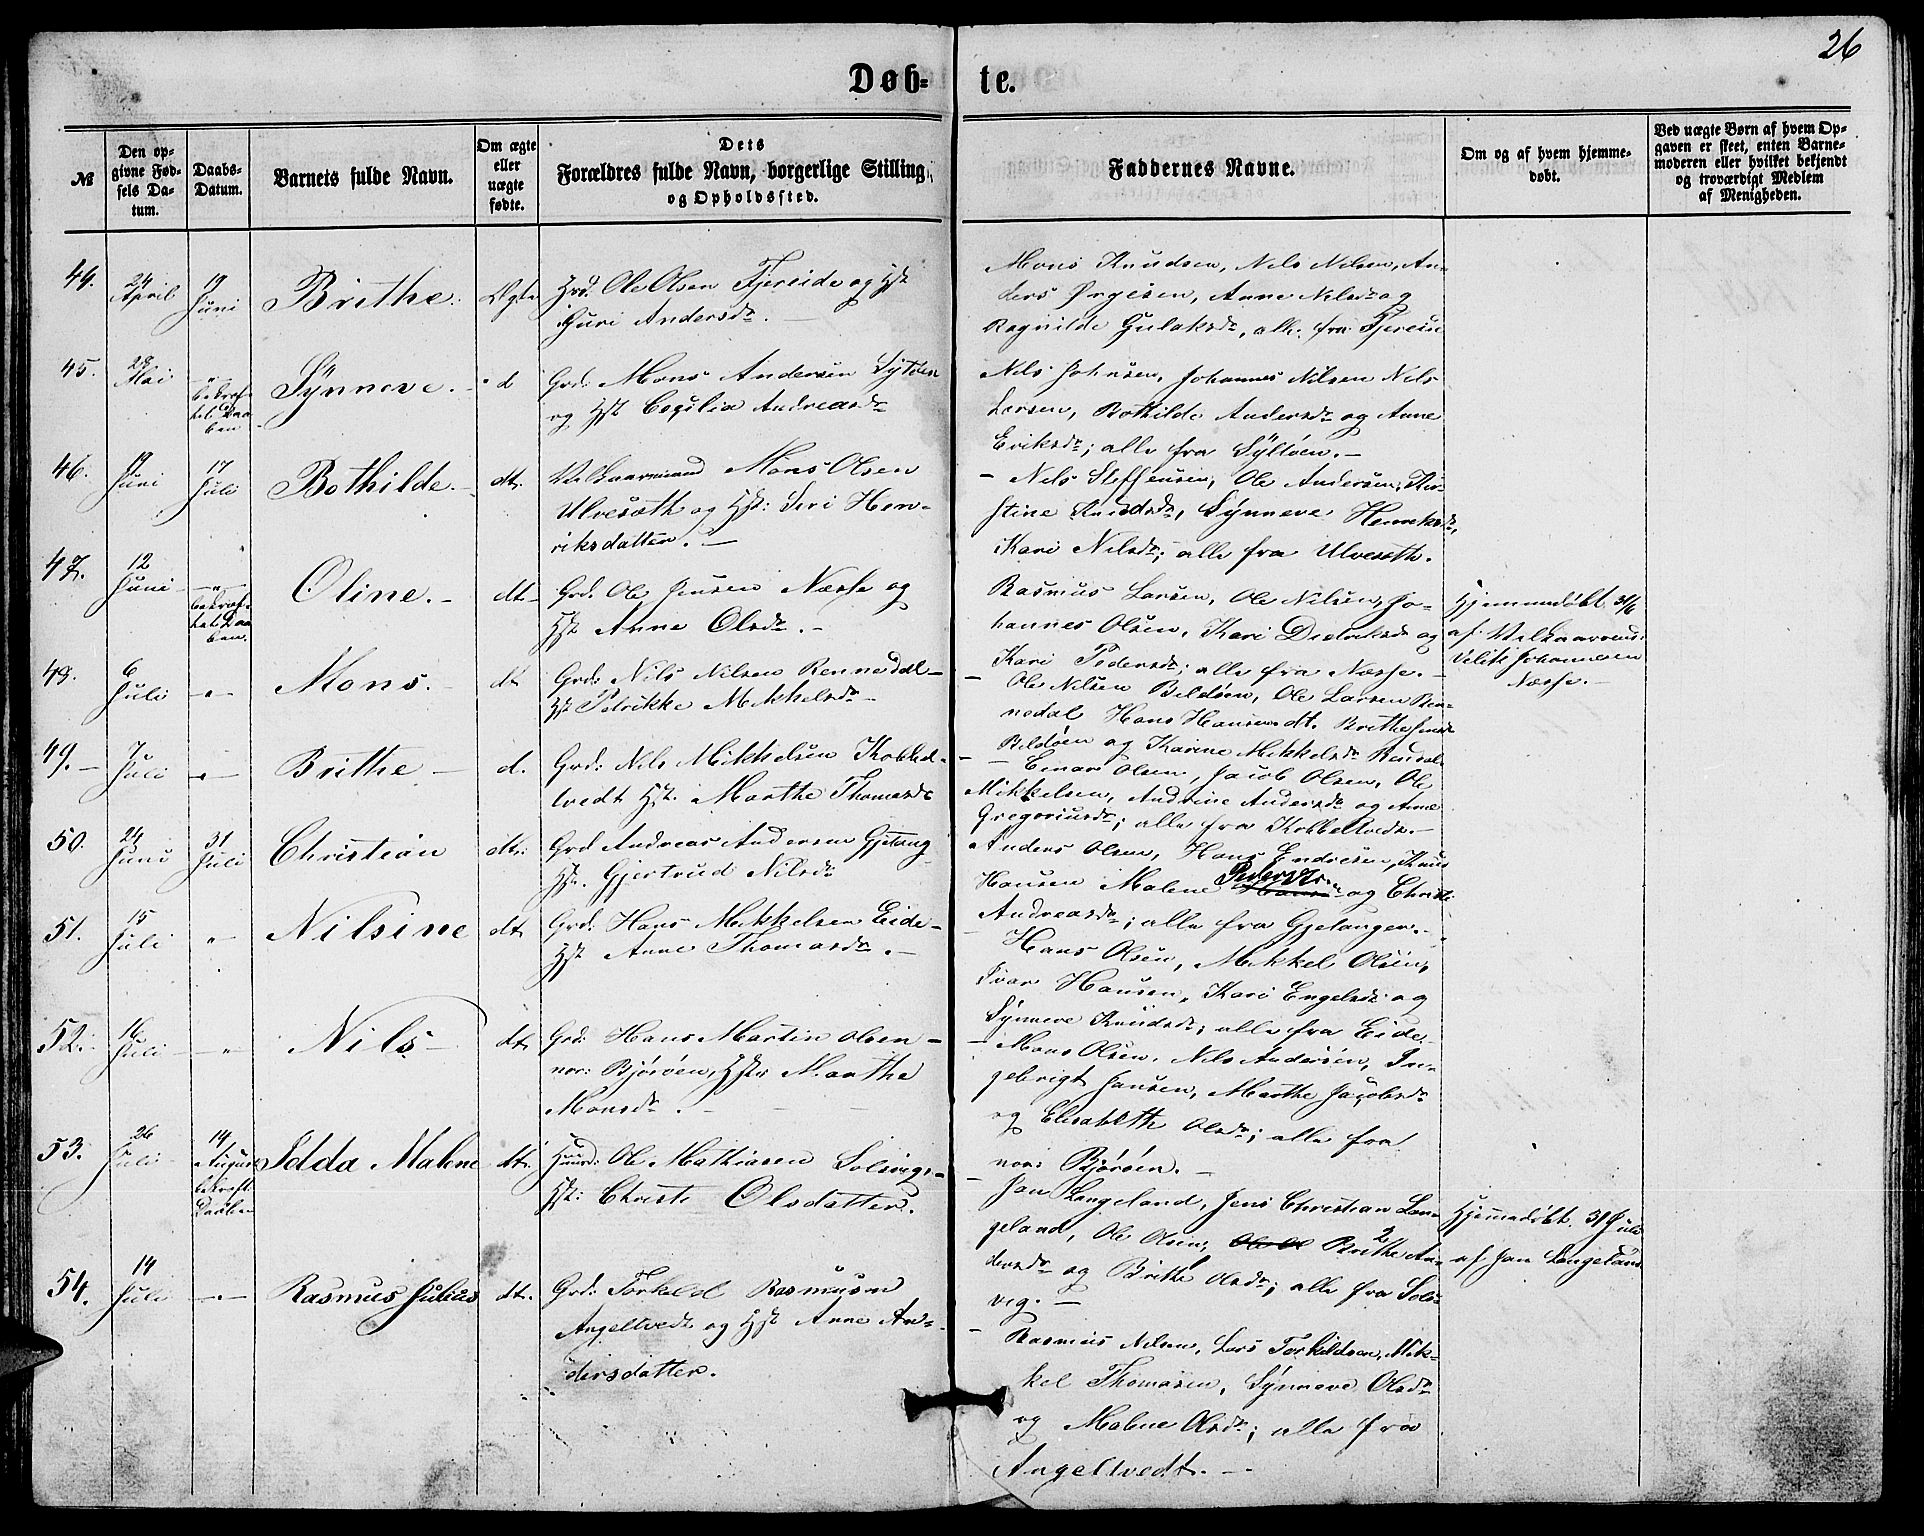 26
Døb-
te.
№
Den op-
givne Fød-
sels Da-
tum.
Daabs-
Datum.
Barnets fulde Navn.
Om ægte
eller
uægte
fødte.
Dets
Forældres fulde Navn, borgerlige Stilling,
og Opholdssted.
Faddernes Navne.
Om og af hvem hjemme-
døbt.
Ved uægte Børn af hvem Op-
gaven er skeet, enten Barne-
moderen eller hvilket bekjendt
og troværdigt Medlem
af Menigheden.
44.
24
April
19
Juni
Brithe.
Ægte
Grd: Ole Olsen Fjereide og Hst
Guri Andersdr.
Mons Knudsen, Nils Nilsen, An-
ders Ørgesen, Anne Nilsdr og
Ragnilde Gulaksdr, alle fra Fjereide
45.
28
Mai
"
bekræf-
tet Daa
ben
Synneve.
d
Grd: Mons Andersen Syltøen
og Hst Cecilia Andreasdr
Nils Johnsen, Johannes Nilsen Nils
Larsen, Bothilde Andersdr og Anne
Eriksdr; alle fra Syltøen.-
46.
19
Juni
17
Juli
Bothilde.
dt.
Vilkaarmand Mons Olsen
Ulvesæth og Hst: Siri Hen-
riksdatter.
- Nils Steffensen, Ole Andersen, Kir-
stine Knudsdr, Synneve Henriksdr,
Kari Nilsdr; alle fra Ulvesæth.
47.
12
Juni
"
bekræf-
tet Daa
ben.
Oline.-
dt-
Grd. Ole Jensen Næsse og
Hst Anne Olsdr.-
Rasmus Larsen, Ole Nilsen, Jo-
hannes Olsen, Kari Diedriksdr og
Kari Pedersdr; alle fra Næsse.-
Hjemmedøbt 31/6
af Vilkaarmand
Johannesen
Næsse.-
48.
6
Juli
"
Mons.
dt
Grd: Nils Nilsen Rennedal-
Hst Petrikke Mikkelsdr-
- Ole Nilsen Bildøen, Ole Larsen Ren-
nedal Hans Hansen dt. Brithe
Bildøen og Karine Mikkelsdr
49.-
7
Juli
"
Brithe
d.
Grd: Nils Mikkelsen Kobbel-
tvedt Hst. Marthe Thomasdr
- Einar Olsen, Jacob Olsen, Ole
Mikkelsen, Andrine Andersdr og Anne
Gregoriusdr; alle fra Kobbeltvedt.-
50.
24
Juni
31
Juli
Christian
dt:
Grd Andreas Andersen Gjetang
Hst. Gjertrud Nilsdr
Anders Olsen, Hans Endresen, Knud
Hansen Malene Pedersdr og Christi
Andreasdr; alle fra Gjetanger.-
51.
15
Juli
"
Nilsine
dt
Grd: Hans Mikkelsen Eide-
Hst Anne Thomasdr.-
- Hans Olsen, Mikkel Olsen,
Ivar Hansen, Kari Engelsdr og
Synneve Knudsdr; alle fra Eide.-
52.
16
Juli
"
Nils
dt
Grd: Hans Martin Olsen-
nor: Bjørøen, Hst: Marthe
Monsdr.
- Mons Olsen, Nils Andersen, In-
gebrigt Jansen, Marthe Jacobsdr
og Elisabeth Olsdr; alle fra
nor: Bjørøen.-
53.
26
Juli
14
August
bekræft.
Daaben
Idda Malene
dt.
Huusd: Ole Mathiasen Solsvig-
Hst: Christi Olsdatter.
- Jan Langeland, Jens Christian Lan-
geland, Ole Olsen, Ole Ol Brithe An-
dersdr og Brithe Olsdr; alle fra Sols-
vig.-
Hjemmedøbt 31 Juli
af Jan Langeland
54.
14
Juli
"
Rasmus Julius
dt.
Grd: Torkeld Rasmusen
Angeltvedt og Hst Anne An-
dersdatter.
- Rasmus Nilsen, Lars Torkildsen, Mik-
kel Thomasen, Synneve Olsdr
og Malene Olsdr; alle fra
Angeltvedt.-